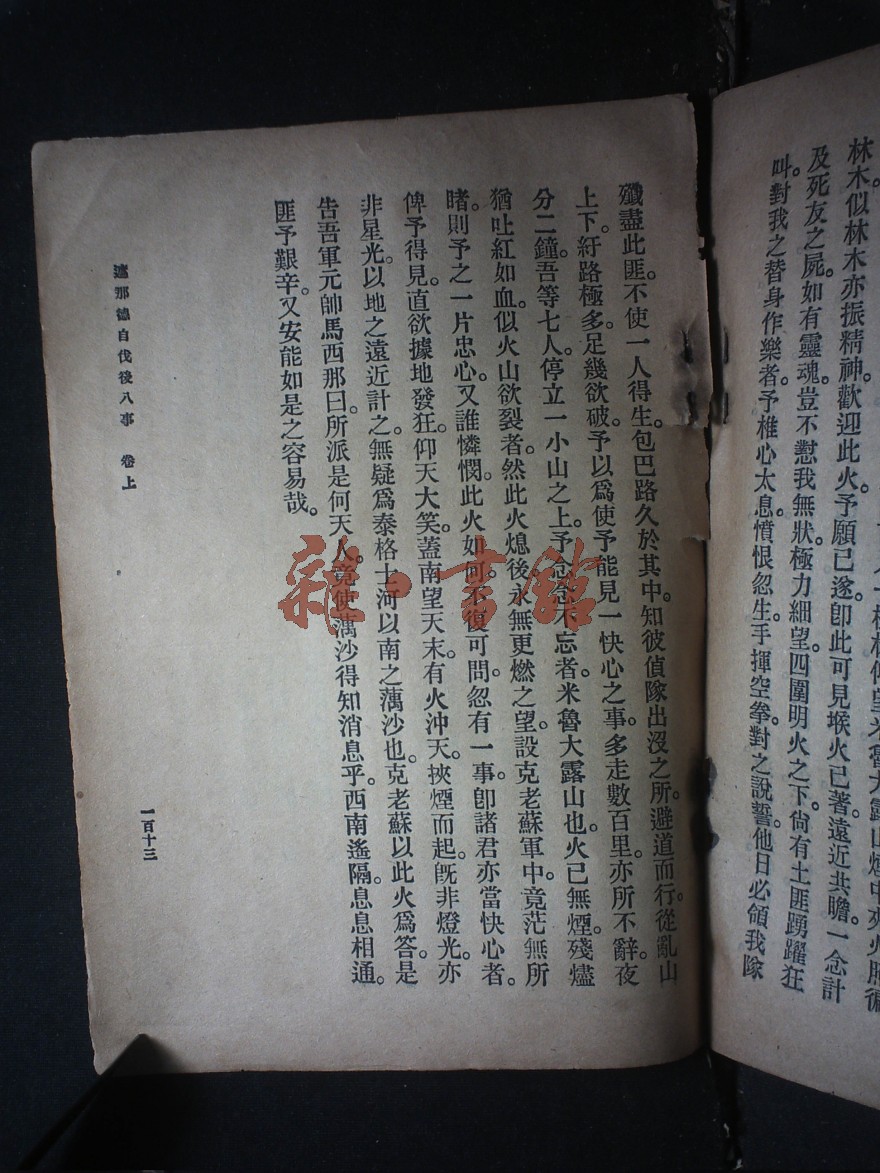 林木似林木亦振精神歡迎此火予願已遂卽此可見堠火已著遠近共瞻。一念計
及死友之屍。如有靈魂。豈不懟我無狀極力細望四圍明火之下。尙有土匪踴躍狂
叫。對我之替身作樂者。予椎心太息。憤恨忽生手揮空拳。對之說誓。他日必領我隊
殲盡此匪。不使一人得生。包巴路久於其中。知彼偵隊出沒之所。避道而行。從亂山
上下。紆路極多。足幾欲破。予以爲使予能見一快心之事。多走數百里。亦所不辭。夜
分二鐘。吾等七人。停立一小山之上。予念念不忘者。米魯大露山也。火已無煙。殘燼
猶吐紅如血。似火山欲裂者。然此火熄後。永無更燃之望。設克老蘇軍中。竟茫無所
睹。則予之一片忠心。又誰憐憫。此火如何。不復可問。忽有一事。卽諸君亦當快心者。
俾予得見。直欲據地發狂。仰天大笑。蓋南望天末。有火沖天。挾煙而起。旣非燈光。亦
非星光。以地之遠近計之。無疑爲泰格士河以南之萬沙也。克老蘇以此火爲答。是
告吾軍元帥馬西那曰。所派是何天人。竟使萬沙得知消息乎。西南遙隔。息息相通。
匪予艱辛。又安能如是之容易哉。
遮那德自伐後八事 卷上
一百十三
雜·書館